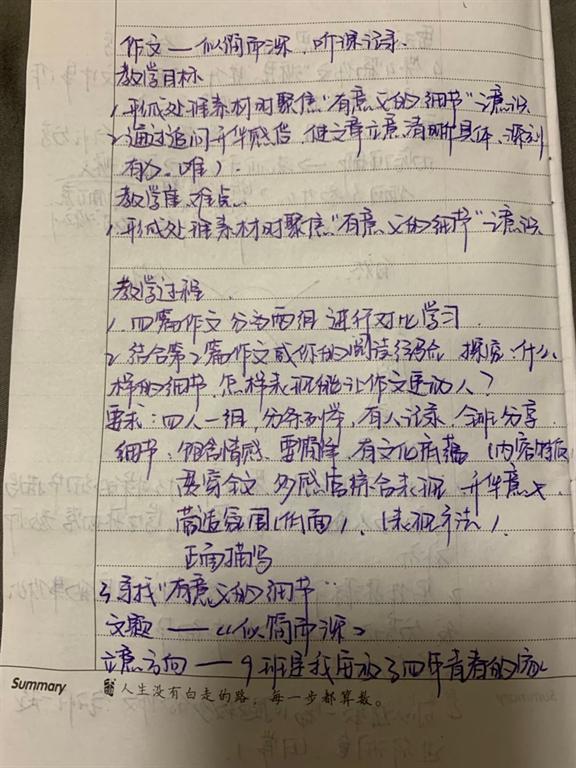 作文—似简而深 听课记录.
教学目标
1.形成处理素材时聚焦"有意义的细节"之意识
2.通过追问升华感悟,使文章立意清晰具体、深刻
有力。(难)
教学重、难点
1.形成处理素材时聚焦"有意义的细节"之意识
教学过程
1.四篇作文分为两组进行对比学习.
2.结合第2篇作文或你的阅读经验 探究:什么
样的细节,怎样表现能让作文更动人?
要求:四人一组,分条列举,有人记录,全班分享
细节:饱含情感、要
有文化底蕴 (内容特质)
贯穿全文 多感官综合表现 升华意义
营造氛围(作面),(表现手法).
正面描写
3.寻找"有意义的细节"
文题——《似简而深》
立意方向——9班是我
四年青春的
Summary
人生没有白走的路,每一步都算数。